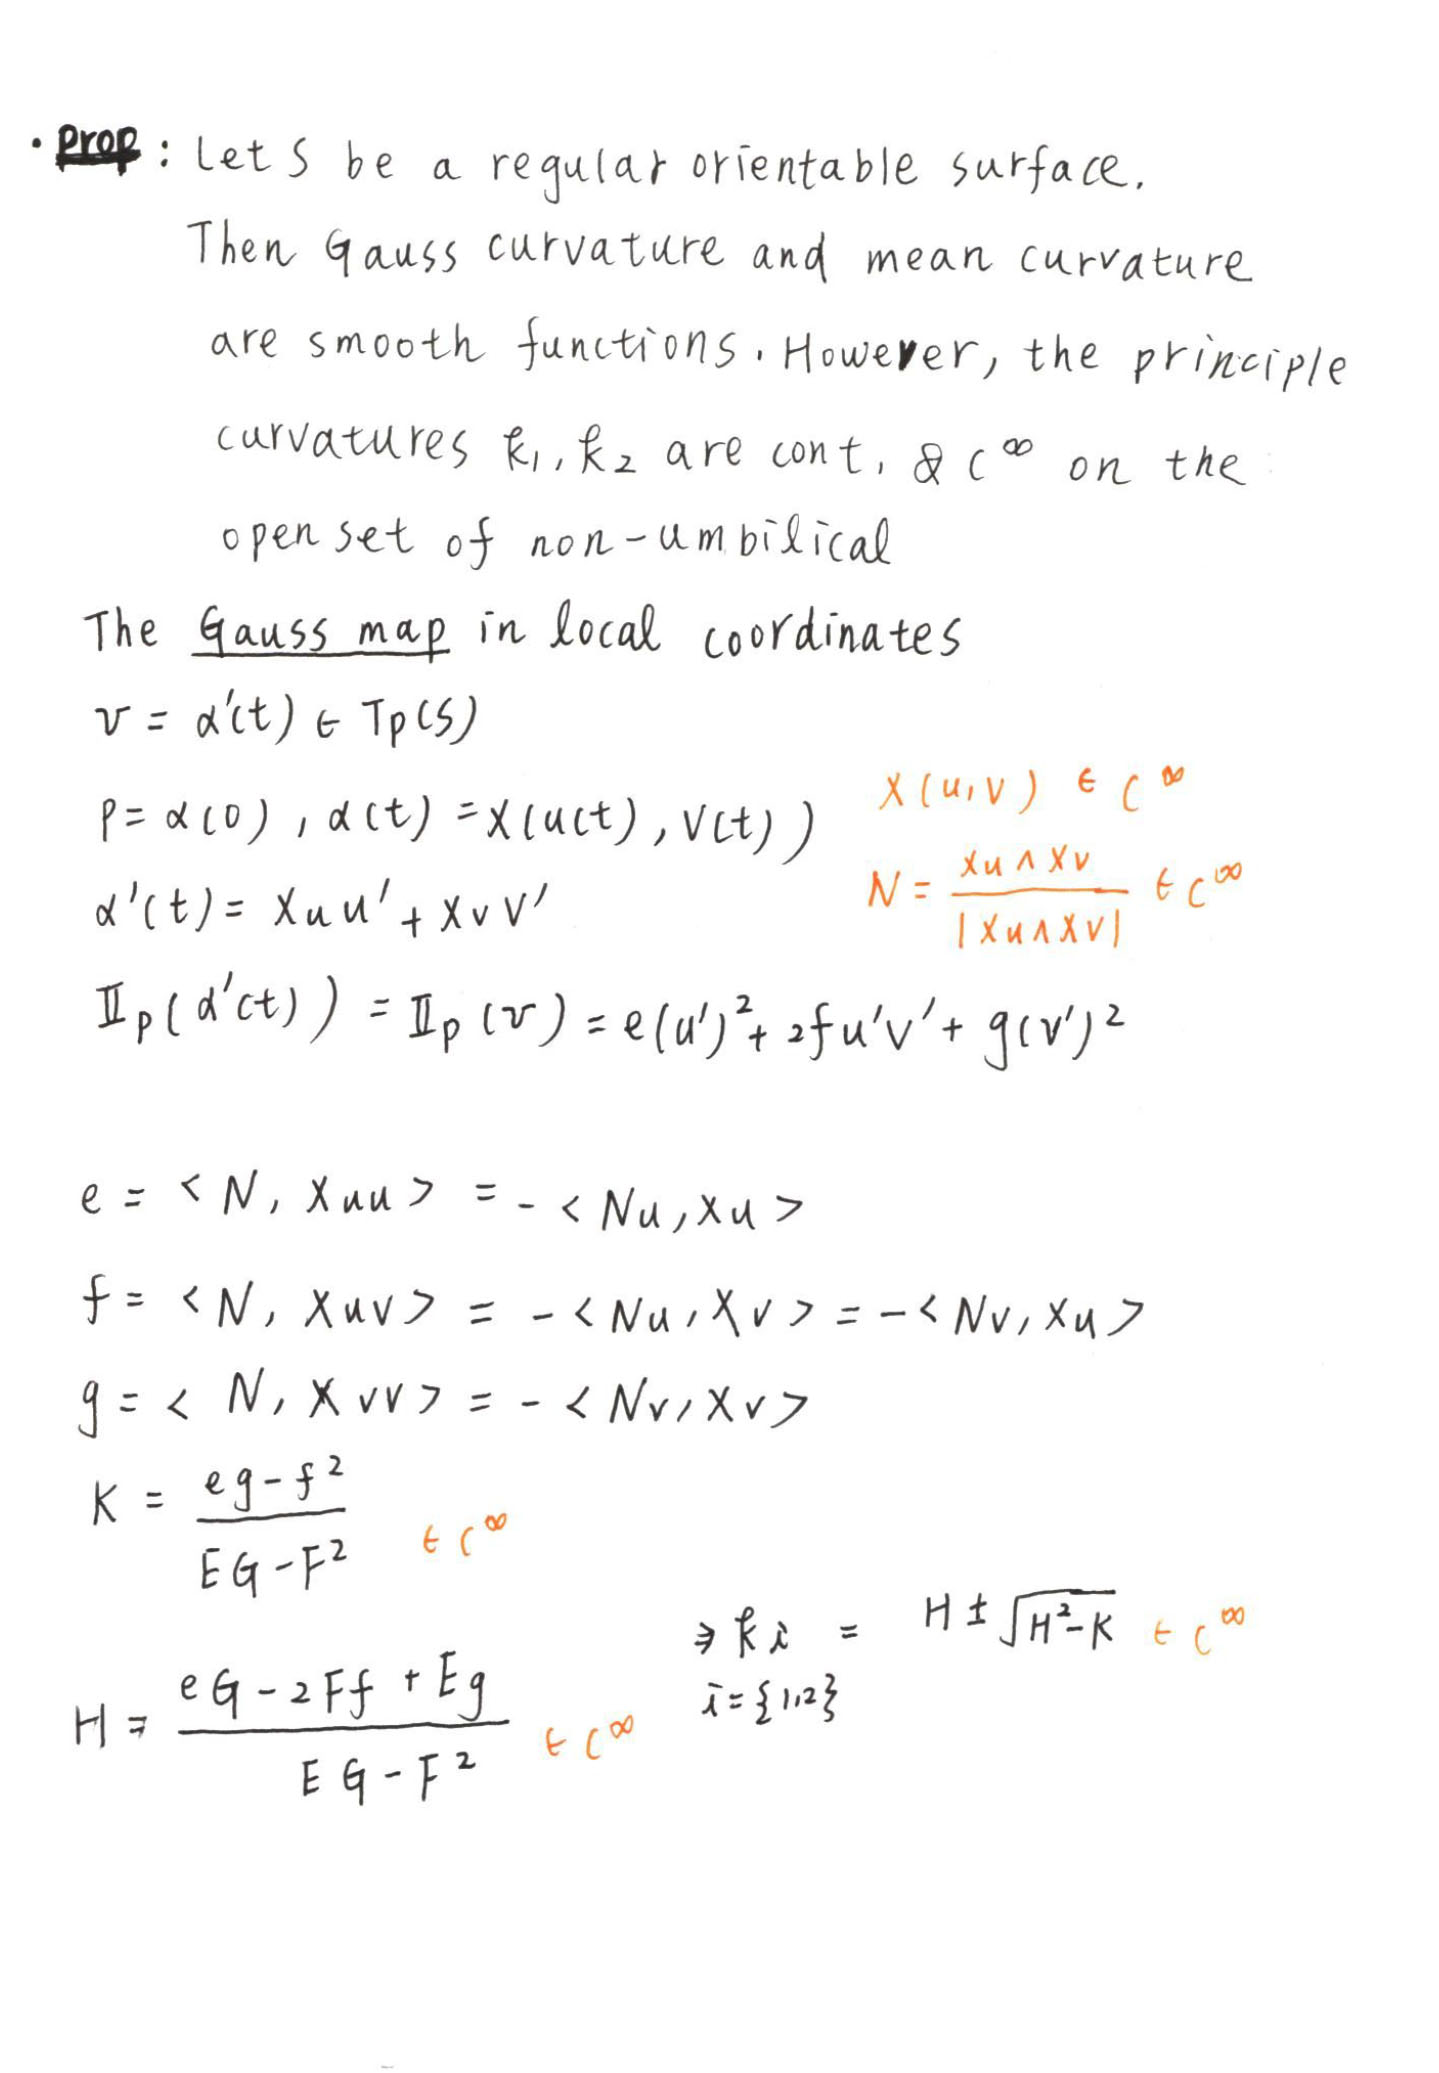 · Prop : Let S be a regular orientable surface.
Then Gauss curvature and mean curvature
are smooth functions. However, the principle
curvatures k₁, k₂ are cont. & C^∞ on the
open set of non-umbilical
The Gauss map in local coordinates
v = α'(t) ∈ Tp(S)
p = α(0) , α(t) = X(u(t), v(t))
X(u,v) ∈ C^∞
α'(t) = Xu u' + Xv v'
N = Xu ∧ Xv / |Xu ∧ Xv| ∈ C^∞
IIp(α'(t)) = IIp(v) = e(u')² + 2fu'v' + g(v')²
e = <N, Xuu> = - <Nu, Xu>
f = <N, Xuv> = - <Nu, Xv> = - <Nv, Xu>
g = <N, Xvv> = - <Nv, Xv>
K = eg - f² / EG - F² ∈ C^∞
H = eG - 2Ff + Eg / EG - F² ∈ C^∞
⇒ ki = H ± √H² - K ∈ C^∞
i = {1,2}